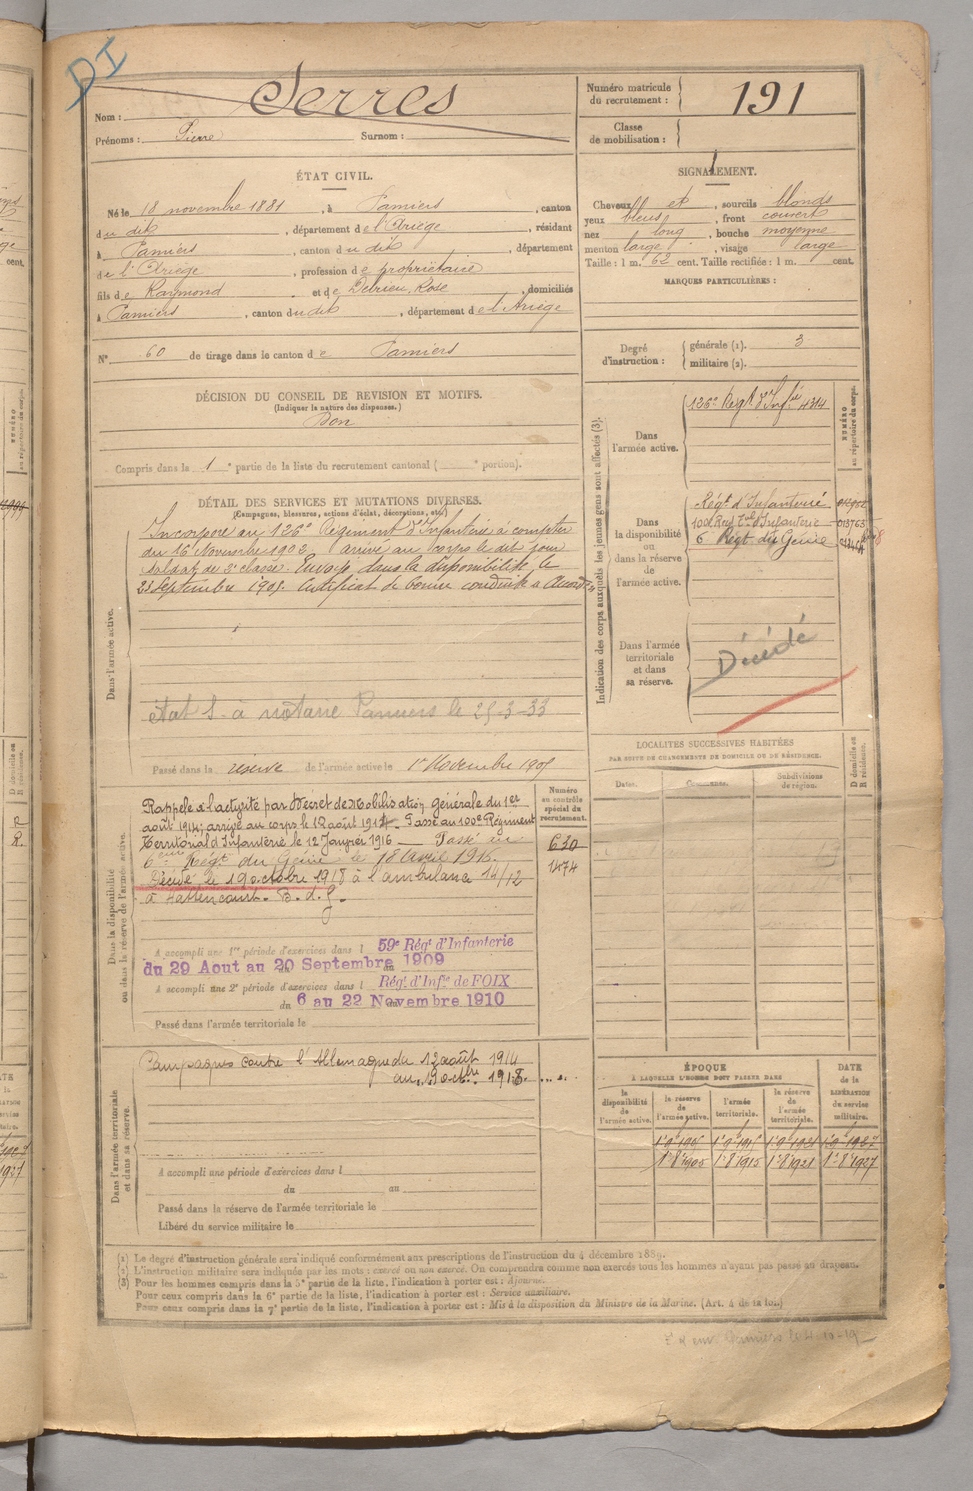 DI
Nom : Serres
Prénoms : Pierre Surnom :
Numéro matricule du recrutement : 191
Classe de mobilisation :
ÉTAT CIVIL.
Né le 18 novembre 1881, à Pamiers, canton
du dit, département de l'Ariège, résidant
à Pamiers, canton du dit, département
de l'Ariège, profession de propriétaire
fils de Raymond et de Debrieu, Rose, domiciliés
à Pamiers, canton du dit, département de l'Ariège
N° 60 de tirage dans le canton de Pamiers
SIGNALEMENT.
Cheveux et, sourcils blonds
yeux bleus, front couvert
nez long, bouche moyenne
menton large, visage large
Taille : 1 m. 62 cent. Taille rectifiée : 1 m. cent.
MARQUES PARTICULIÈRES :
Degré d'instruction : générale (1). 3
militaire (2).
DÉCISION DU CONSEIL DE REVISION ET MOTIFS.
(Indiquer la nature des dispenses.)
Bon
Compris dans la 1e partie de la liste du recrutement cantonal ( e portion).
DÉTAIL DES SERVICES ET MUTATIONS DIVERSES.
(Campagnes, blessures, actions d'éclat, décorations, etc.)
Dans l'armée active.
Incorporé au 126e Régiment d'Infanterie à compter
du 16 Novembre 1902, arrivé au corps le dit jour
soldat de 2e classe. Envoyé dans la disponibilité le
23 Septembre 1905. Certificat de bonne conduite "Accordé"
état S. à notaire Pamiers le 25-3-33
Passé dans la réserve de l'armée active le 1er Novembre 1905
Indication des corps auxquels les jeunes gens sont affectés (3).
NUMÉRO au répertoire du corps.
Dans l'armée active.
126e Regt d'Infie 4314
Dans la disponibilité ou dans la réserve de l'armée active.
Régt d'Infanterie
100e Reg Tal d'Infanterie 013763
6 Régt du Génie
Dans l'armée territoriale et dans sa réserve.
Décédé
LOCALITÉS SUCCESSIVES HABITÉES
PAR SUITE DE CHANGEMENTS DE DOMICILE OU DE RÉSIDENCE.
Dates. Communes. Subdivisions de région. D domicile ou R résidence.
Dans la disponibilité ou dans la réserve de l'armée active.
Numéro au contrôle spécial du recrutement.
630
1474
Rappelé à l'activité par Décret de Mobilisation générale du 1er
août 1914; arrivé au corps le 12 août 1914. Passé au 100e Régiment
Territorial d'Infanterie le 12 Janvier 1916 — Passé au
6ème Régt du Génie le 18 Avril 1916.
Décédé le 19 octobre 1918 à l'ambulance 14/12
à Hattencourt. B. d. G.
A accompli une 1re période d'exercices dans l 59e Régt d'Infanterie
du 29 Aout au 20 Septembre 1909
A accompli une 2e période d'exercices dans l Régt d'Infie de FOIX
du 6 au 22 Novembre 1910
Passé dans l'armée territoriale le
Dans l'armée territoriale et dans sa réserve.
Campagnes contre l'Allemagne du 12 août 1914
au 19 octbre 1918.
A accompli une période d'exercices dans l
du au
Passé dans la réserve de l'armée territoriale le
Libéré du service militaire le
ÉPOQUE
À LAQUELLE L'HOMME DOIT PASSER DANS
DATE de la LIBÉRATION du service militaire.
la disponibilité de l'armée active. la réserve de l'armée active. l'armée territoriale. la réserve de l'armée territoriale.
1er 8e 1905 1er 8e 1915 1er 8e 1921 1er 8e 1927
(1) Le degré d'instruction générale sera indiqué conformément aux prescriptions de l'instruction du 4 décembre 1889.
(2) L'instruction militaire sera indiquée par les mots : exercé ou non exercé. On comprendra comme non exercés tous les hommes n'ayant pas passé au drapeau.
(3) Pour les hommes compris dans la 5e partie de la liste, l'indication à porter est : Ajourné.
Pour ceux compris dans la 6e partie de la liste, l'indication à porter est : Service auxiliaire.
Pour ceux compris dans la 7e partie de la liste, l'indication à porter est : Mis à la disposition du Ministre de la Marine. (Art. 4 de la loi.)
Pamiers le 4-10-19